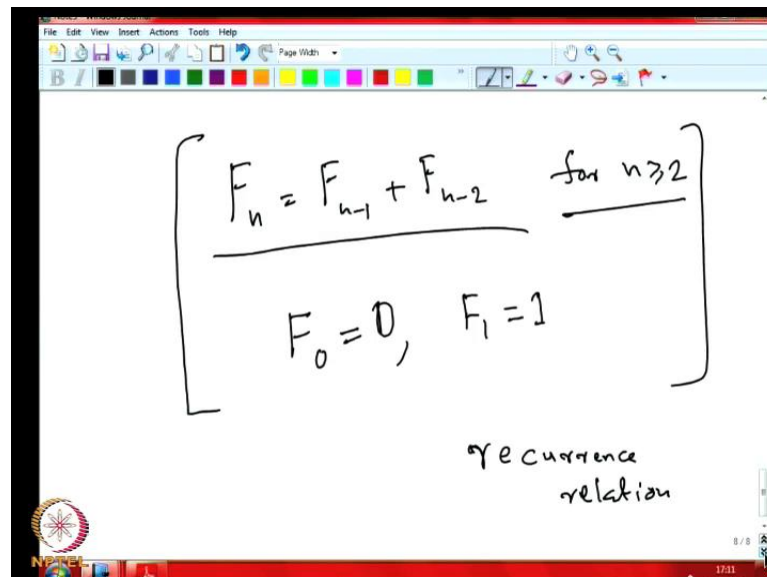 File Edit View Insert Actions Tools Help
Page Width
B I
F_n = F_{n-1} + F_{n-2} for n ≥ 2
F_0 = 0, F_1 = 1
recurrence
relation
8 / 8
NPTEL
17:11